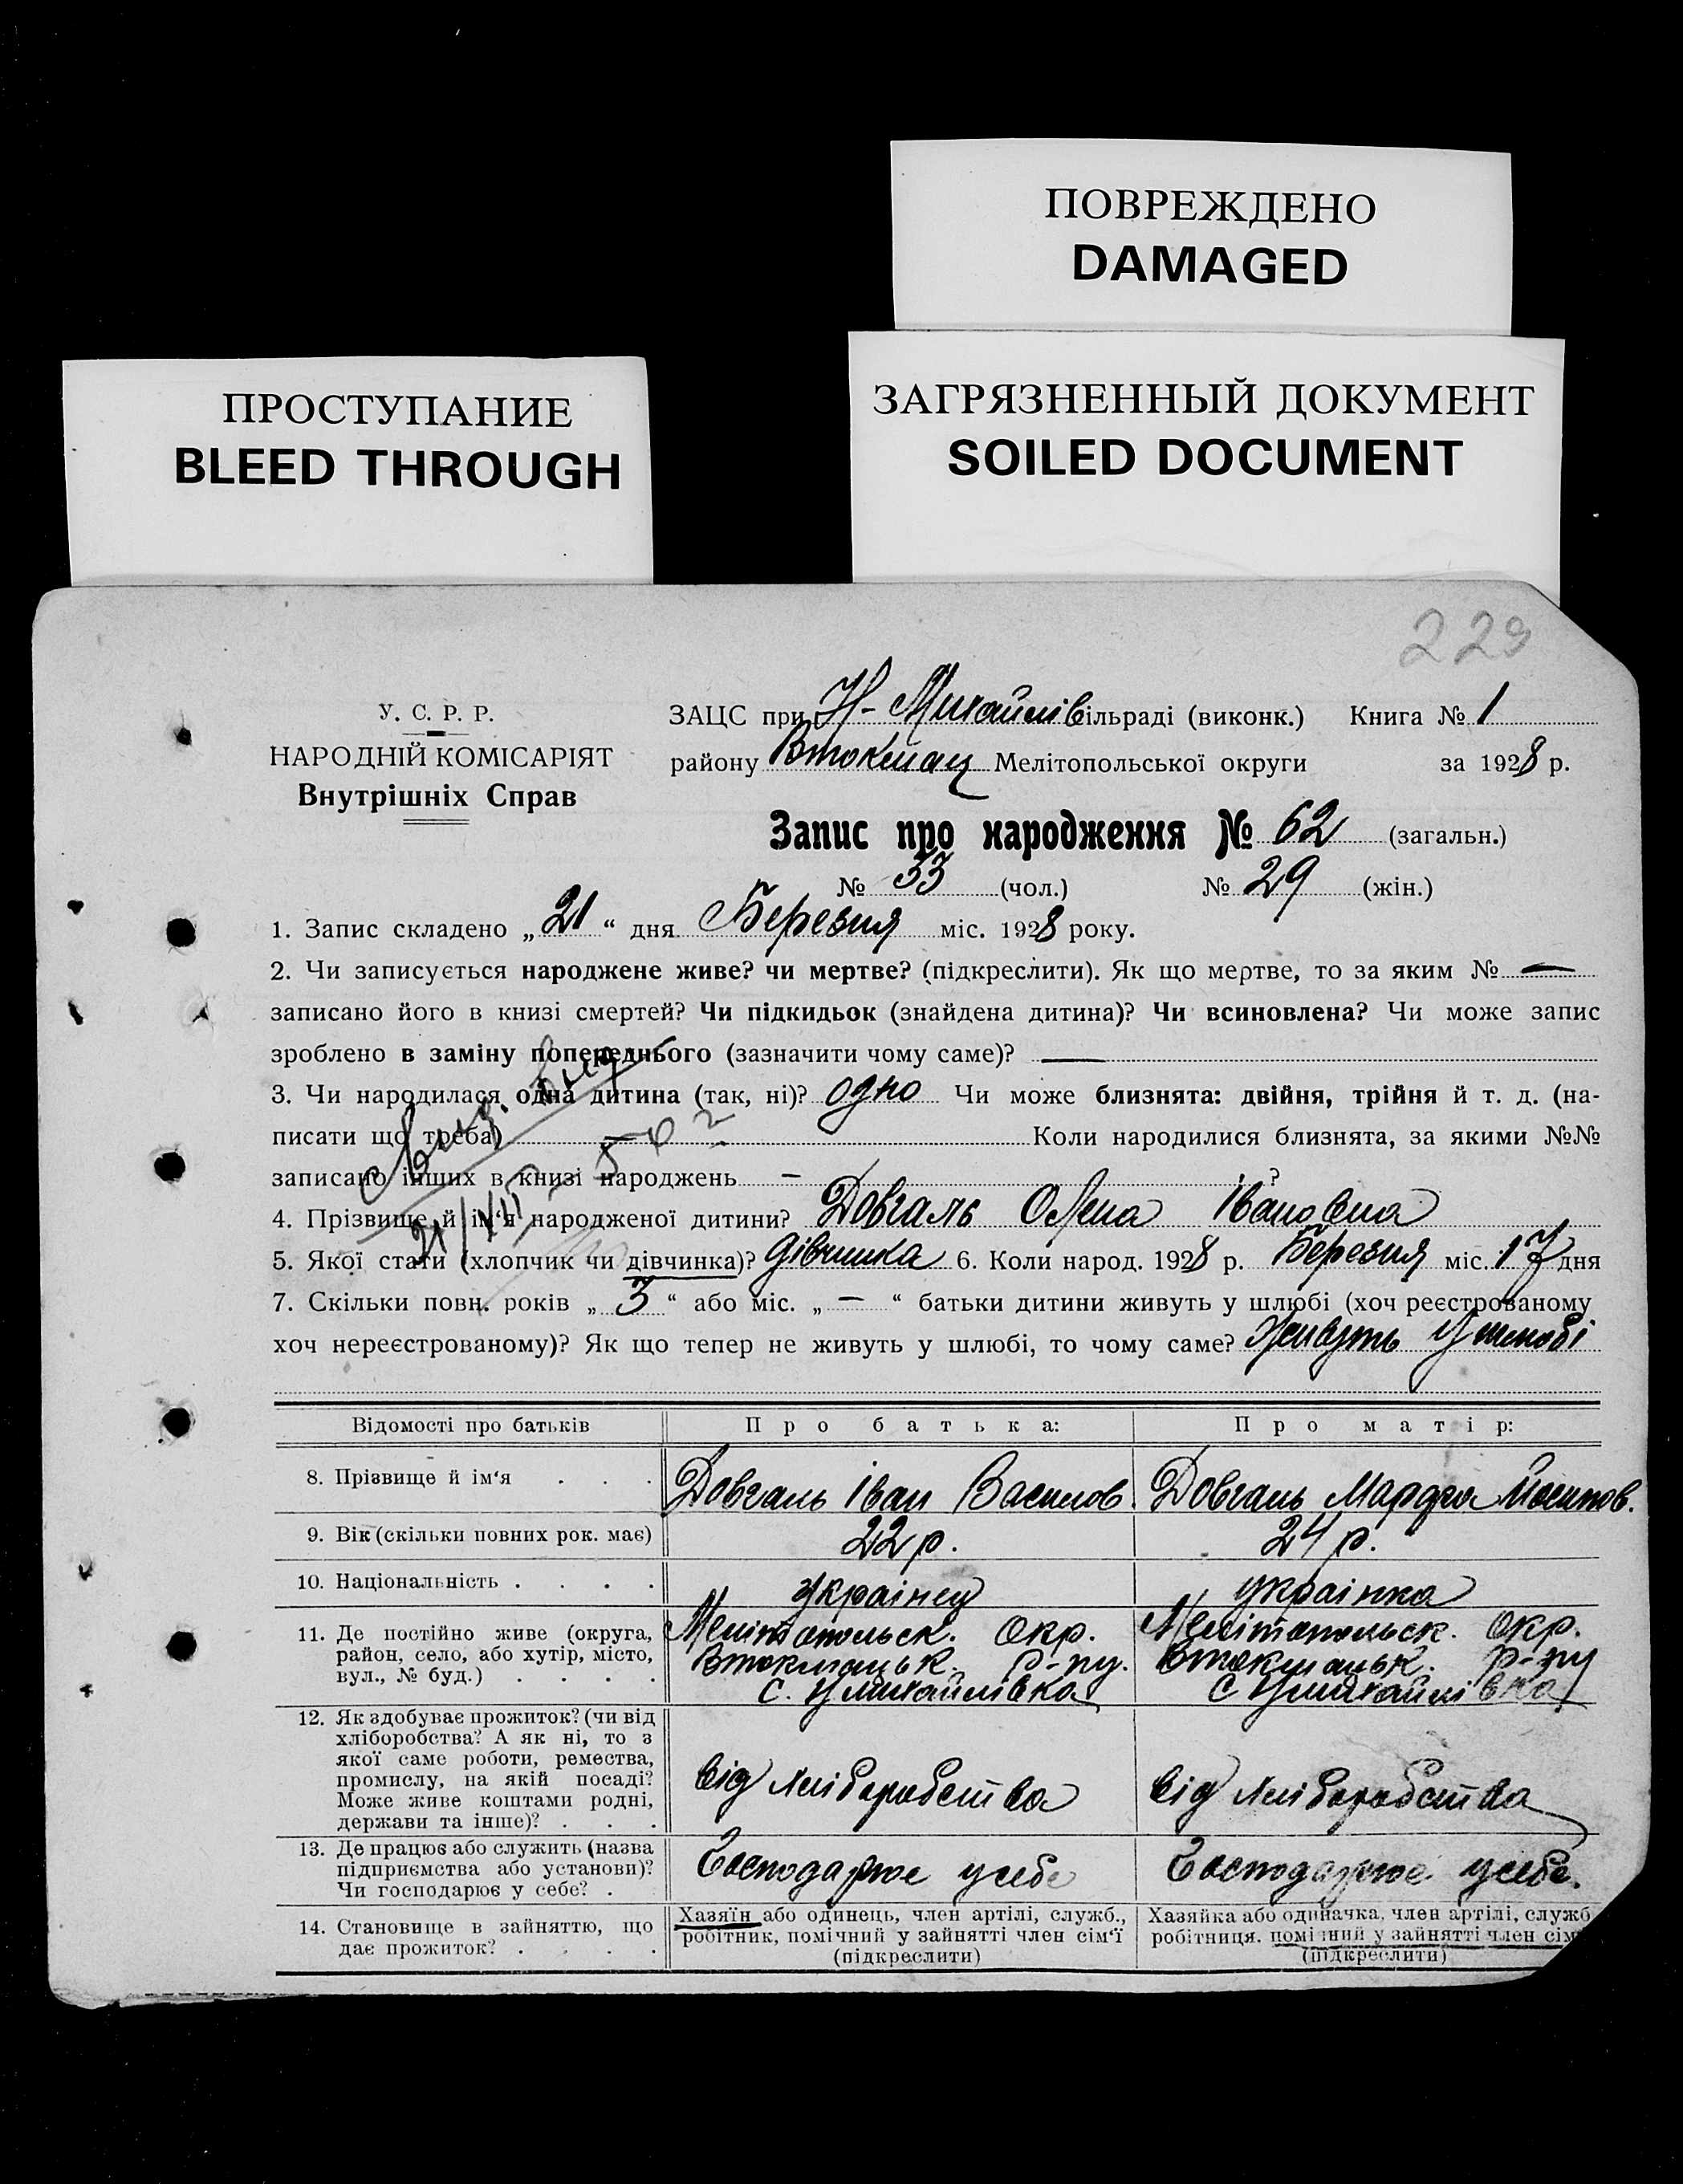 ПОВРЕЖДЕНО
DAMAGED
ПРОСТУПАНИЕ
BLEED THROUGH
ЗАГРЯЗНЕННЫЙ ДОКУМЕНТ
SOILED DOCUMENT
229
У. С. Р. Р.
НАРОДНІЙ КОМІСАРІЯТ
Внутрішніх Справ
ЗАЦС при Н-Михайлівільраді (виконк.) Книга № 1
району Втокмац Мелітопольської округи за 1928 р.
Запис про народження № 62 (загальн.)
№ 33 (чол.) № 29 (жін.)
1. Запис складено „ 21 “ дня Березня міс. 1928 року.
2. Чи записується народжене живе? чи мертве? (підкреслити). Як що мертве, то за яким № —
записано його в книзі смертей? Чи підкидьок (знайдена дитина)? Чи всиновлена? Чи може запис
зроблено в заміну попереднього (зазначити чому саме)? —
3. Чи народилася одна дитина (так, ні)? одно Чи може близнята: двійня, трійня й т. д. (на-
писати що треба) — Коли народилися близнята, за якими №№
записано інших в книзі народжень — ?
4. Прізвище й ім‘я народженої дитини? Довгаль Олена Івановна
5. Якої стати (хлопчик чи дівчинка)? дівчинка 6. Коли народ. 1928 р. Березня міс. 17 дня
7. Скільки повн. років „ 3 “ або міс. „ — “ батьки дитини живуть у шлюбі (хоч реєстрованому
хоч нереєстрованому)? Як що тепер не живуть у шлюбі, то чому саме? Живуть у шлюбі
Відомості про батьків Про батька: Про матір:
8. Прізвище й ім‘я . . . Довгаль Іван Васильов. Довгаль Марфа Йосипов.
9. Вік (скільки повних рок. має) 22 р. 24 р.
10. Національність . . . . українец українка
11. Де постійно живе (округа, район, село, або хутір, місто, вул., № буд.) . . . .
Мелітопольск. Окр. Мелітопольск. Окр.
Втокмацьк. р-ну. Втокмацьк. р-ну
с. Нмихайлівка с Нмихайлівка
12. Як здобуває прожиток? (чи від
хліборобства? А як ні, то з
якої саме роботи, ремества,
промислу, на якій посаді?
Може живе коштами родні,
держави та інше)? . . .
від хліборобства від хліборобства
13. Де працює або служить (назва
підприємства або установи)?
Чи господарює у себе? .
Господарює у себе Господарює у себе.
14. Становище в зайняттю, що
дає прожиток? . . . .
Хазяїн або одинець, член артілі, служб.,
робітник, помічний у зайнятті член сім‘ї
(підкреслити)
Хазяйка або одиначка, член артілі, служб
робітниця, помічний у зайнятті член сім
(підкреслити)